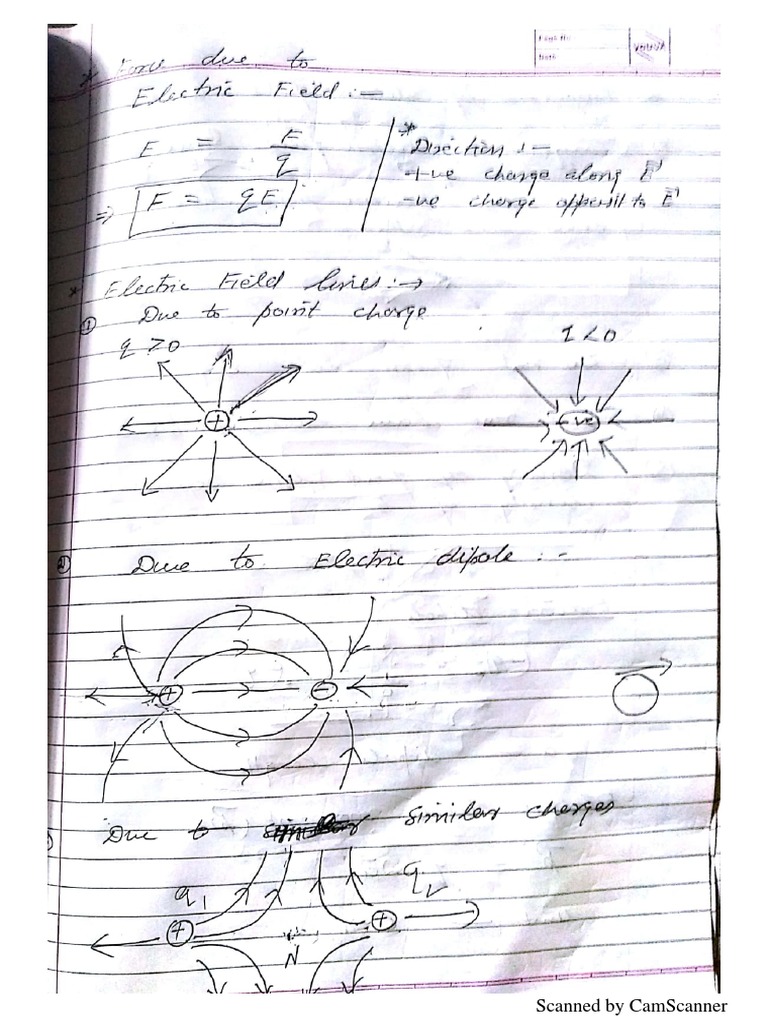 * Force due to
Electric Field :-
E = F/q
⇒ F = qE
* Direction :-
+ve charge along E⃗
-ve charge opposit to E⃗
* Electric Field lines :→
① Due to point charge
q > 0
q < 0
+
-ve
② Due to Electric dipole :-
+ -
Due to similar charges
q₁ q₂
+ +
N
Scanned by CamScanner